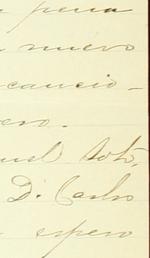 pena
nuevo
cancio-
ero.
uel Soto,
D. Carlos
espero